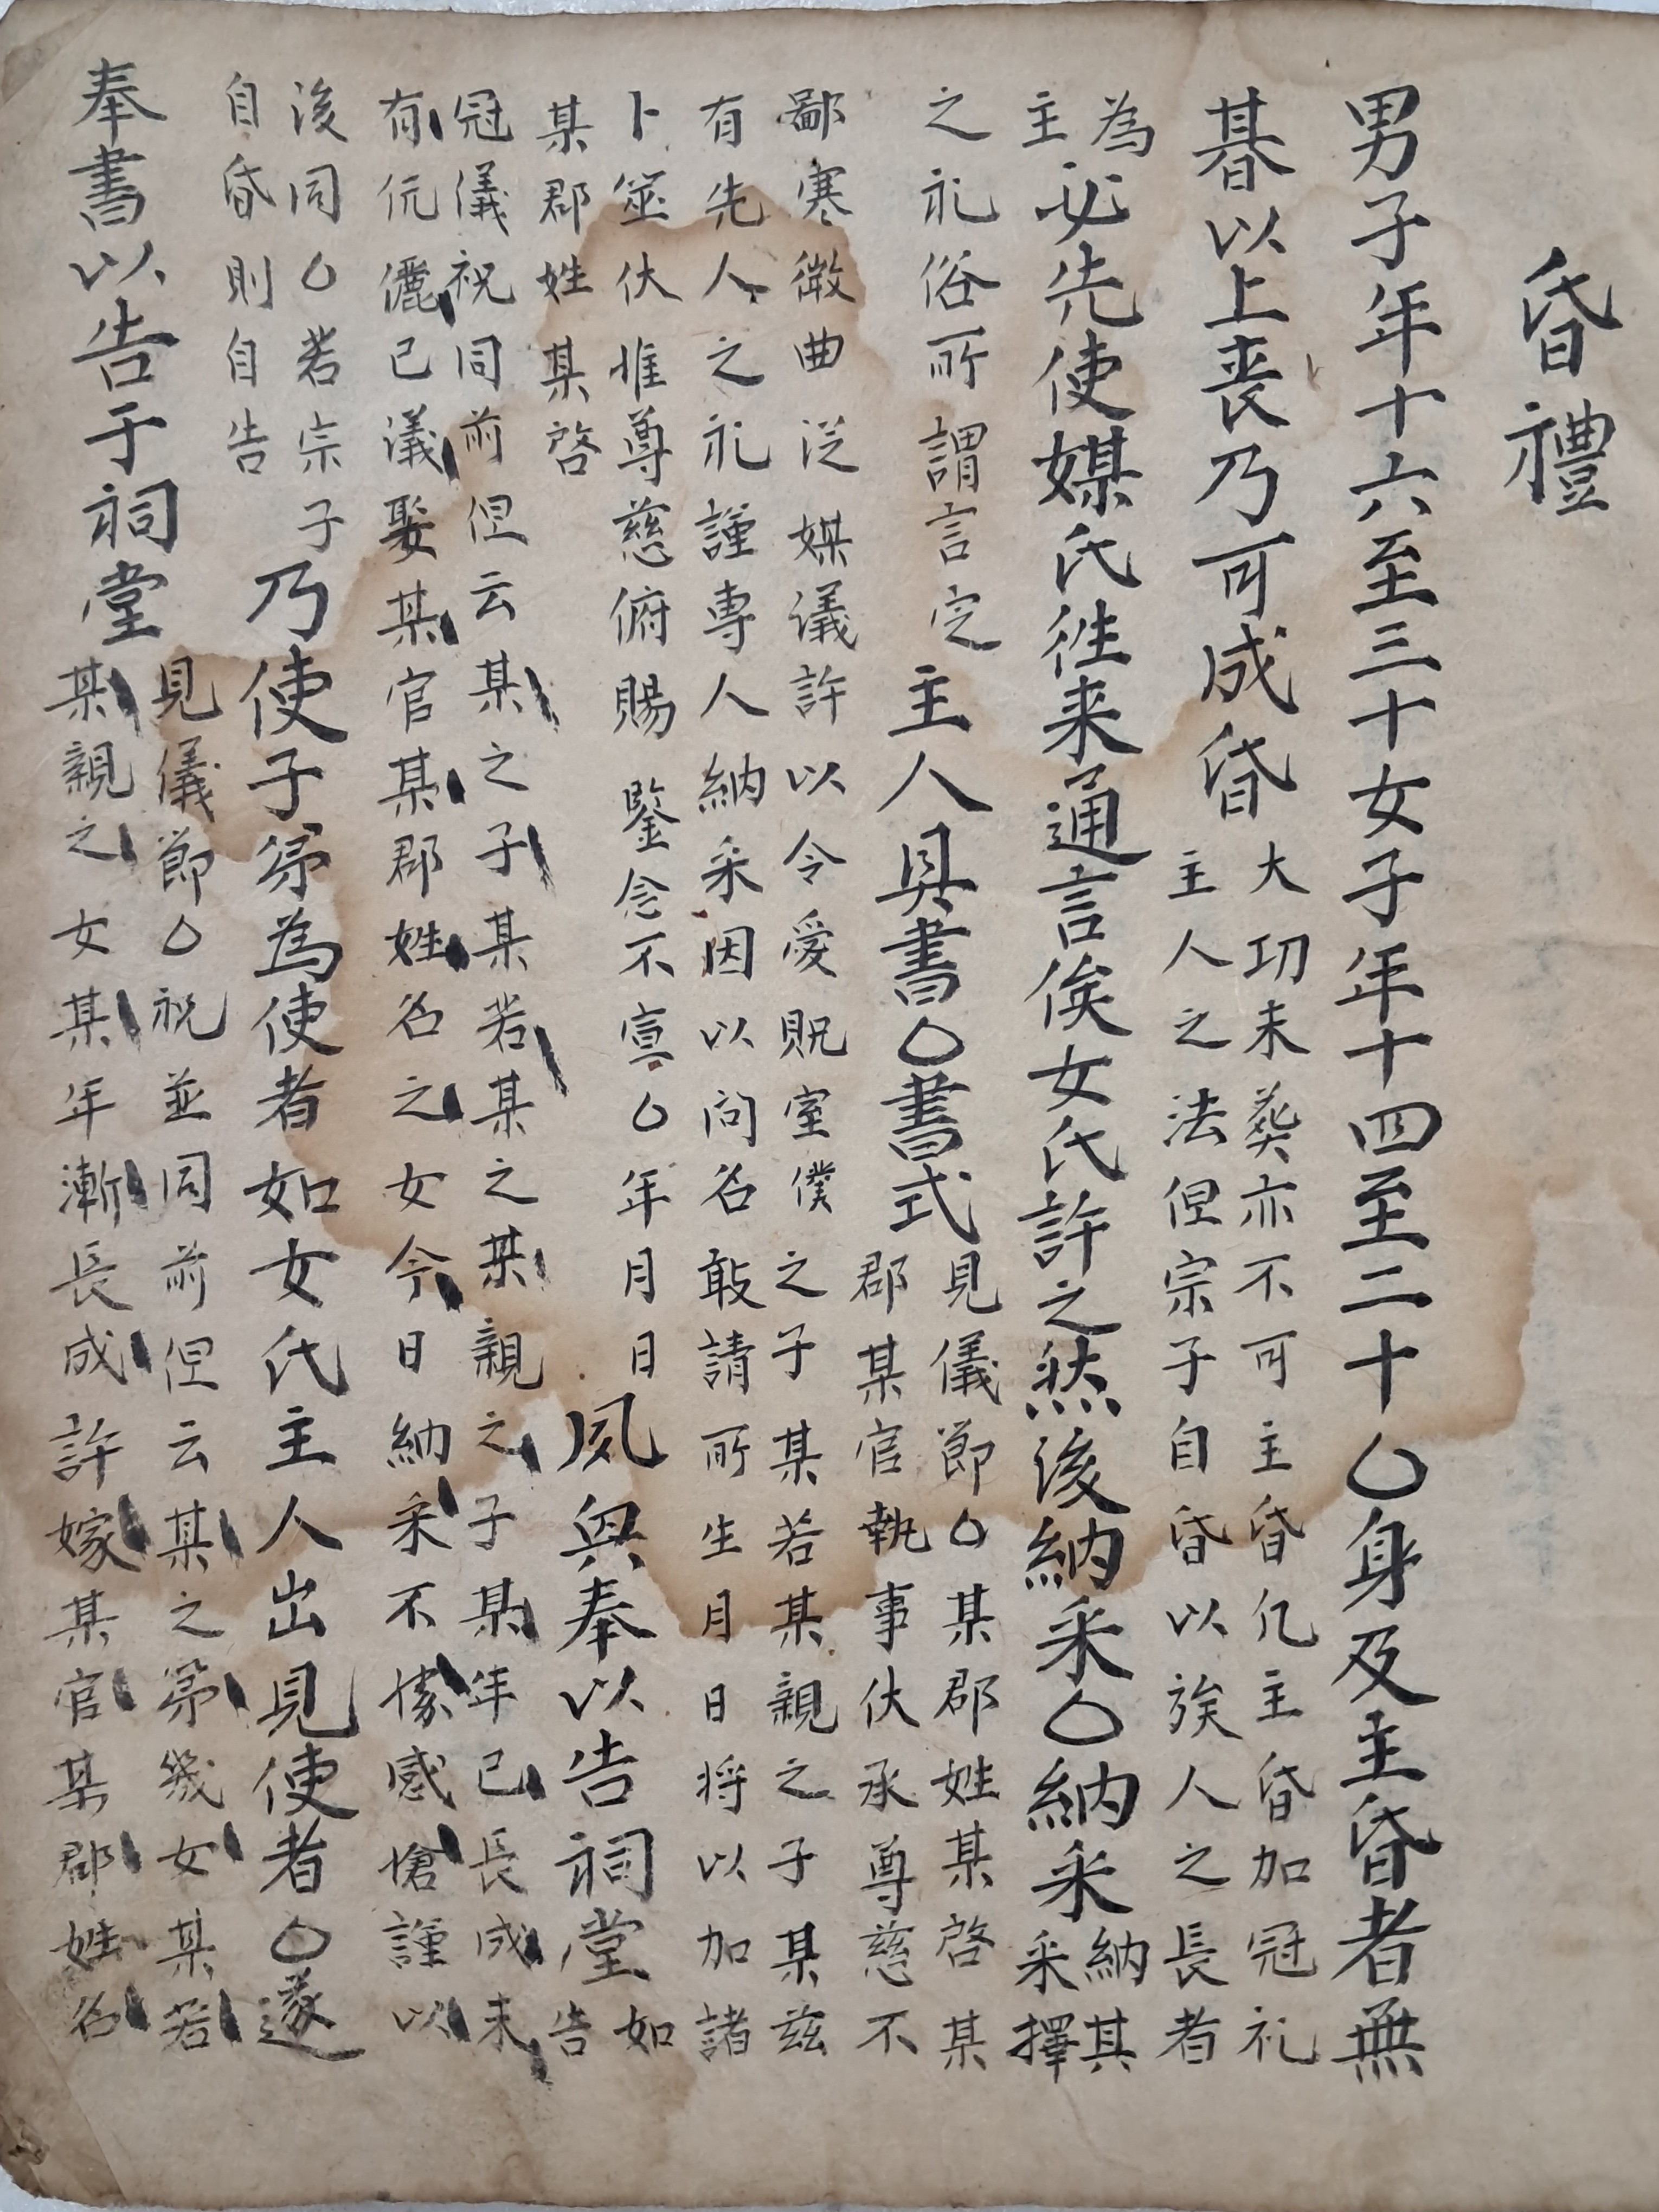 昏禮
男子年十六至三十女子年十四至二十○身及主昏者無
朞以上喪乃可成昏
大功未葬亦不可主昏凢主昏加冠礼
主人之法但宗子自昏以族人之長者
為
主
必先使媒氏徃来通言俟女氏許之然後納采○納采
納其
采擇
之礼俗所謂言定
主人具書○書式
見儀節○某郡姓某啓某
郡某官執事伏承尊慈不
鄙寒微曲從媒議許以令愛貺室僕之子某若某親之子某玆
有先人之礼謹専人納采因以问名敢請所生月日将以加諸
卜筮伏惟尊慈俯賜鑒念不宣○年月日
某郡姓某啓
夙興奉以告祠堂
如
告
冠儀祝同前但云某之子某若某之某親之子某年已長成未
有伉儷已議娶某官某郡姓名之女今日納采不㥿感愴謹以
後同○若宗子
自昏則自告
乃使子弟為使者如女氏主人出見使者○遂
奉書以告于祠堂
見儀節○祝並同前但云某之弟幾女某若
某親之女某年漸長成許嫁某官某郡姓名